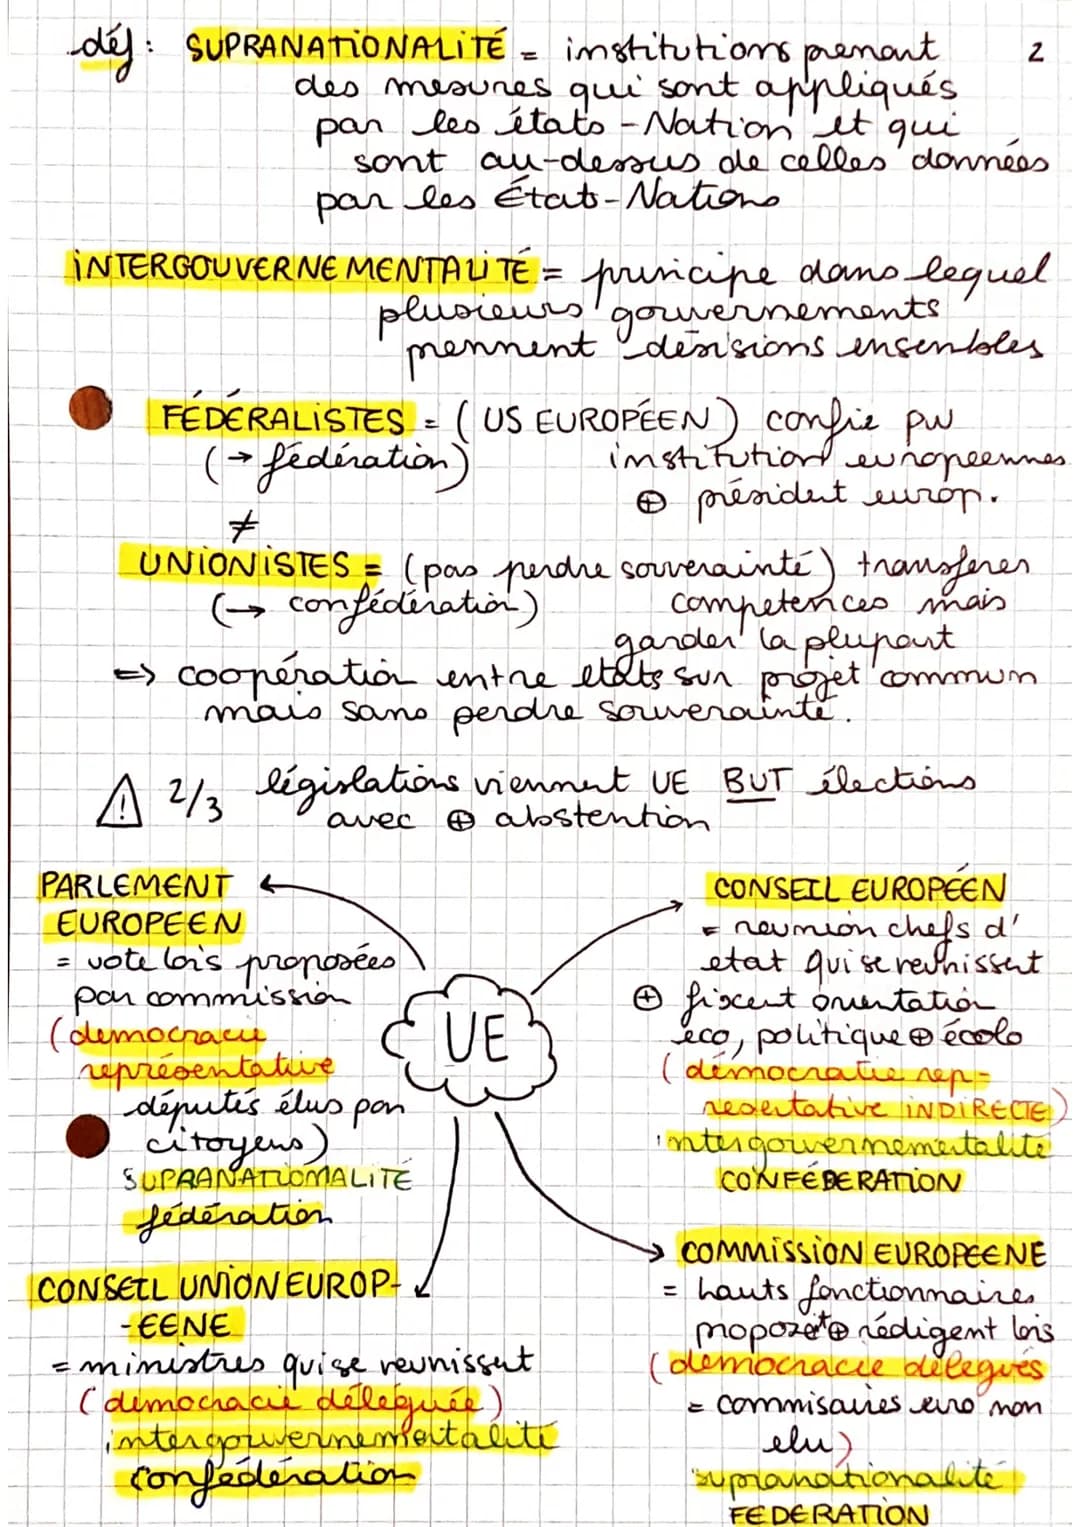 déf : SUPRANATIONALITÉ = institutions prenant 2
des mesures qui sont appliqués
par les états-Nation et qui
sont au-dessus de celles données
par les État-Nations
INTERGOUVERNEMENTALITÉ = principe dans lequel
plusieurs gouvernements
prennent décisions ensembles
FÉDÉRALISTES = (US EUROPÉEN) confie pw
(→ fédération) institution européennes
⊕ président europ.
≠
UNIONISTES = (pas perdre souverainté) transferer
(→ confédération) competences mais
garder la plupart
=> coopération entre etats sur projet commun
mais sans perdre souverainté.
⚠ 2/3 législations viennent UE BUT élections
avec ⊕ abstention
PARLEMENT
EUROPEEN
= vote lois proposées
par commission
(democracie
représentative
députés élus par
citoyens)
SUPRANATIONALITÉ
fédération
CONSEIL EUROPÉEN
= reunion chefs d'
etat qui se reunissent
⊕ fixent orientation
éco, politique ⊕ écolo
(démocratie rep-
resentative INDIRECTE)
intergouvernementalité
CONFÉDERATION
UE
CONSEIL UNION EUROP-
-EENE
= ministres qui se reunissent
(democracie déléguée)
intergouvernementalité
confédération
COMMISSION EUROPEENE
= hauts fonctionnaires
propozent ⊕ rédigent lois
(democracie délegués
= commisaires euro non
elu)
supranationalité
FEDERATION